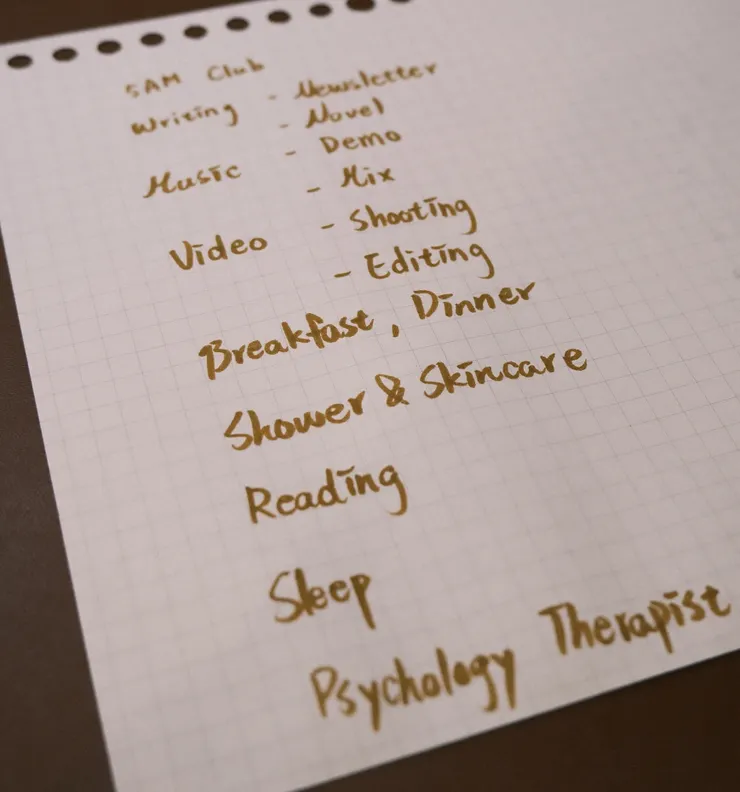 5AM Club
Writing - Newsletter
- Novel
Music - Demo
- Mix
Video - Shooting
- Editing
Breakfast, Dinner
Shower & Skincare
Reading
Sleep
Psychology Therapist